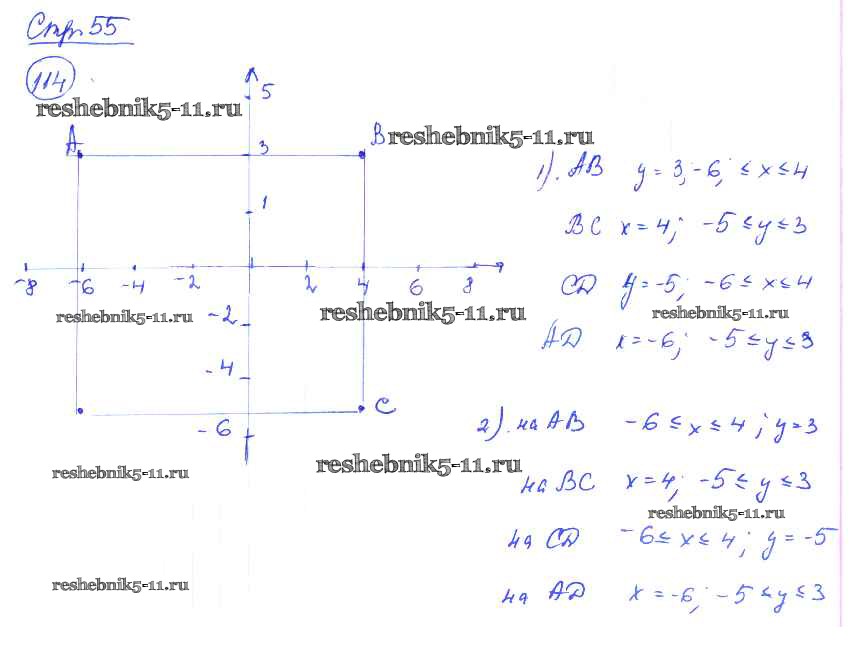 Стр. 55
114
reshebnik5-11.ru
5
A
B
reshebnik5-11.ru
3
1). AB y = 3; -6; ≤ x ≤ 4
1
BC x = 4; -5 ≤ y ≤ 3
-8 -6 -4 -2 2 4 6 8
CD y = -5; -6 ≤ x ≤ 4
reshebnik5-11.ru
-2
reshebnik5-11.ru
reshebnik5-11.ru
AD x = -6; -5 ≤ y ≤ 3
-4
C
-6
2). на AB -6 ≤ x ≤ 4; y = 3
reshebnik5-11.ru
reshebnik5-11.ru
на BC x = 4; -5 ≤ y ≤ 3
reshebnik5-11.ru
на CD -6 ≤ x ≤ 4; y = -5
reshebnik5-11.ru
на AD x = -6; -5 ≤ y ≤ 3